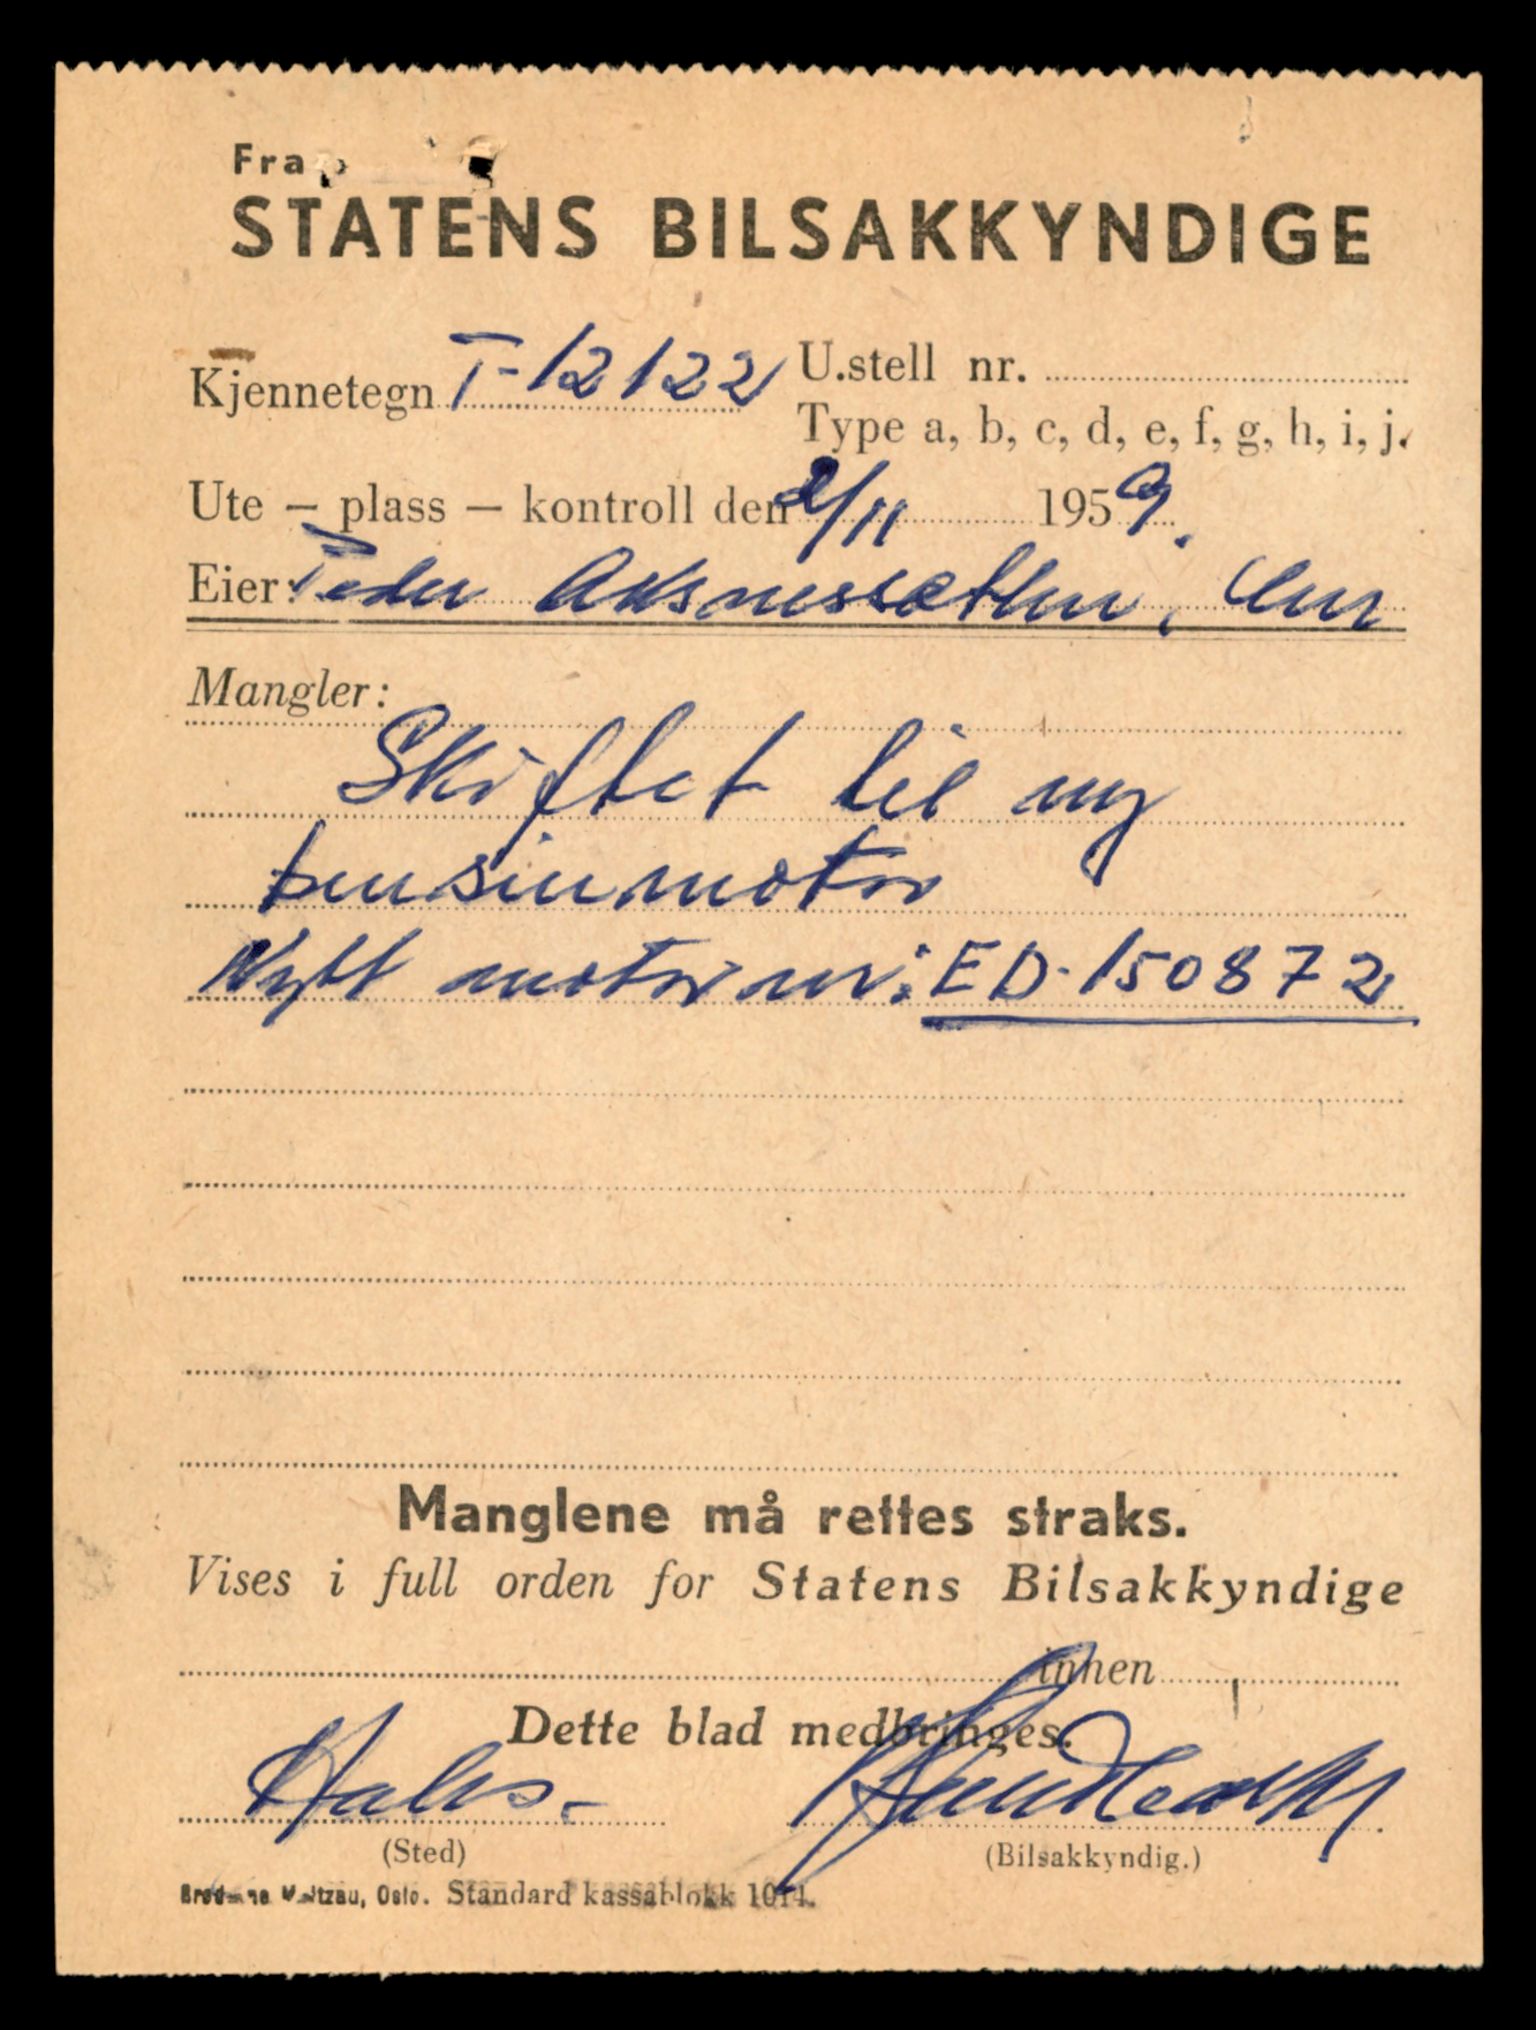 Fra
STATENS BILSAKKYNDIGE
Kjennetegn T-12122 U.stell nr.
Type a, b, c, d, e, f, g, h, i, j.
Ute – plass – kontroll den 2/11 1959.
Eier: Peder Aksnessæther,
Mangler:
Skiftet til ny
bensinmotor
Nytt motor nr: ED-150872
Manglene må rettes straks.
Vises i full orden for Statens Bilsakkyndige
innen
Dette blad medbringes.
(Sted) (Bilsakkyndig.)
Oslo. Standard kassablokk 1014.